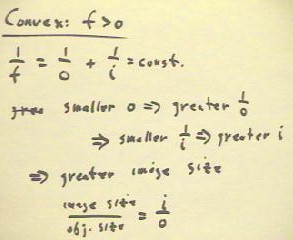 Convex: f>0
1/f = 1/o + 1/i = const.
smaller o => greater 1/o
=> smaller 1/i => greater i
=> greater image size
image size / obj. size = i/o